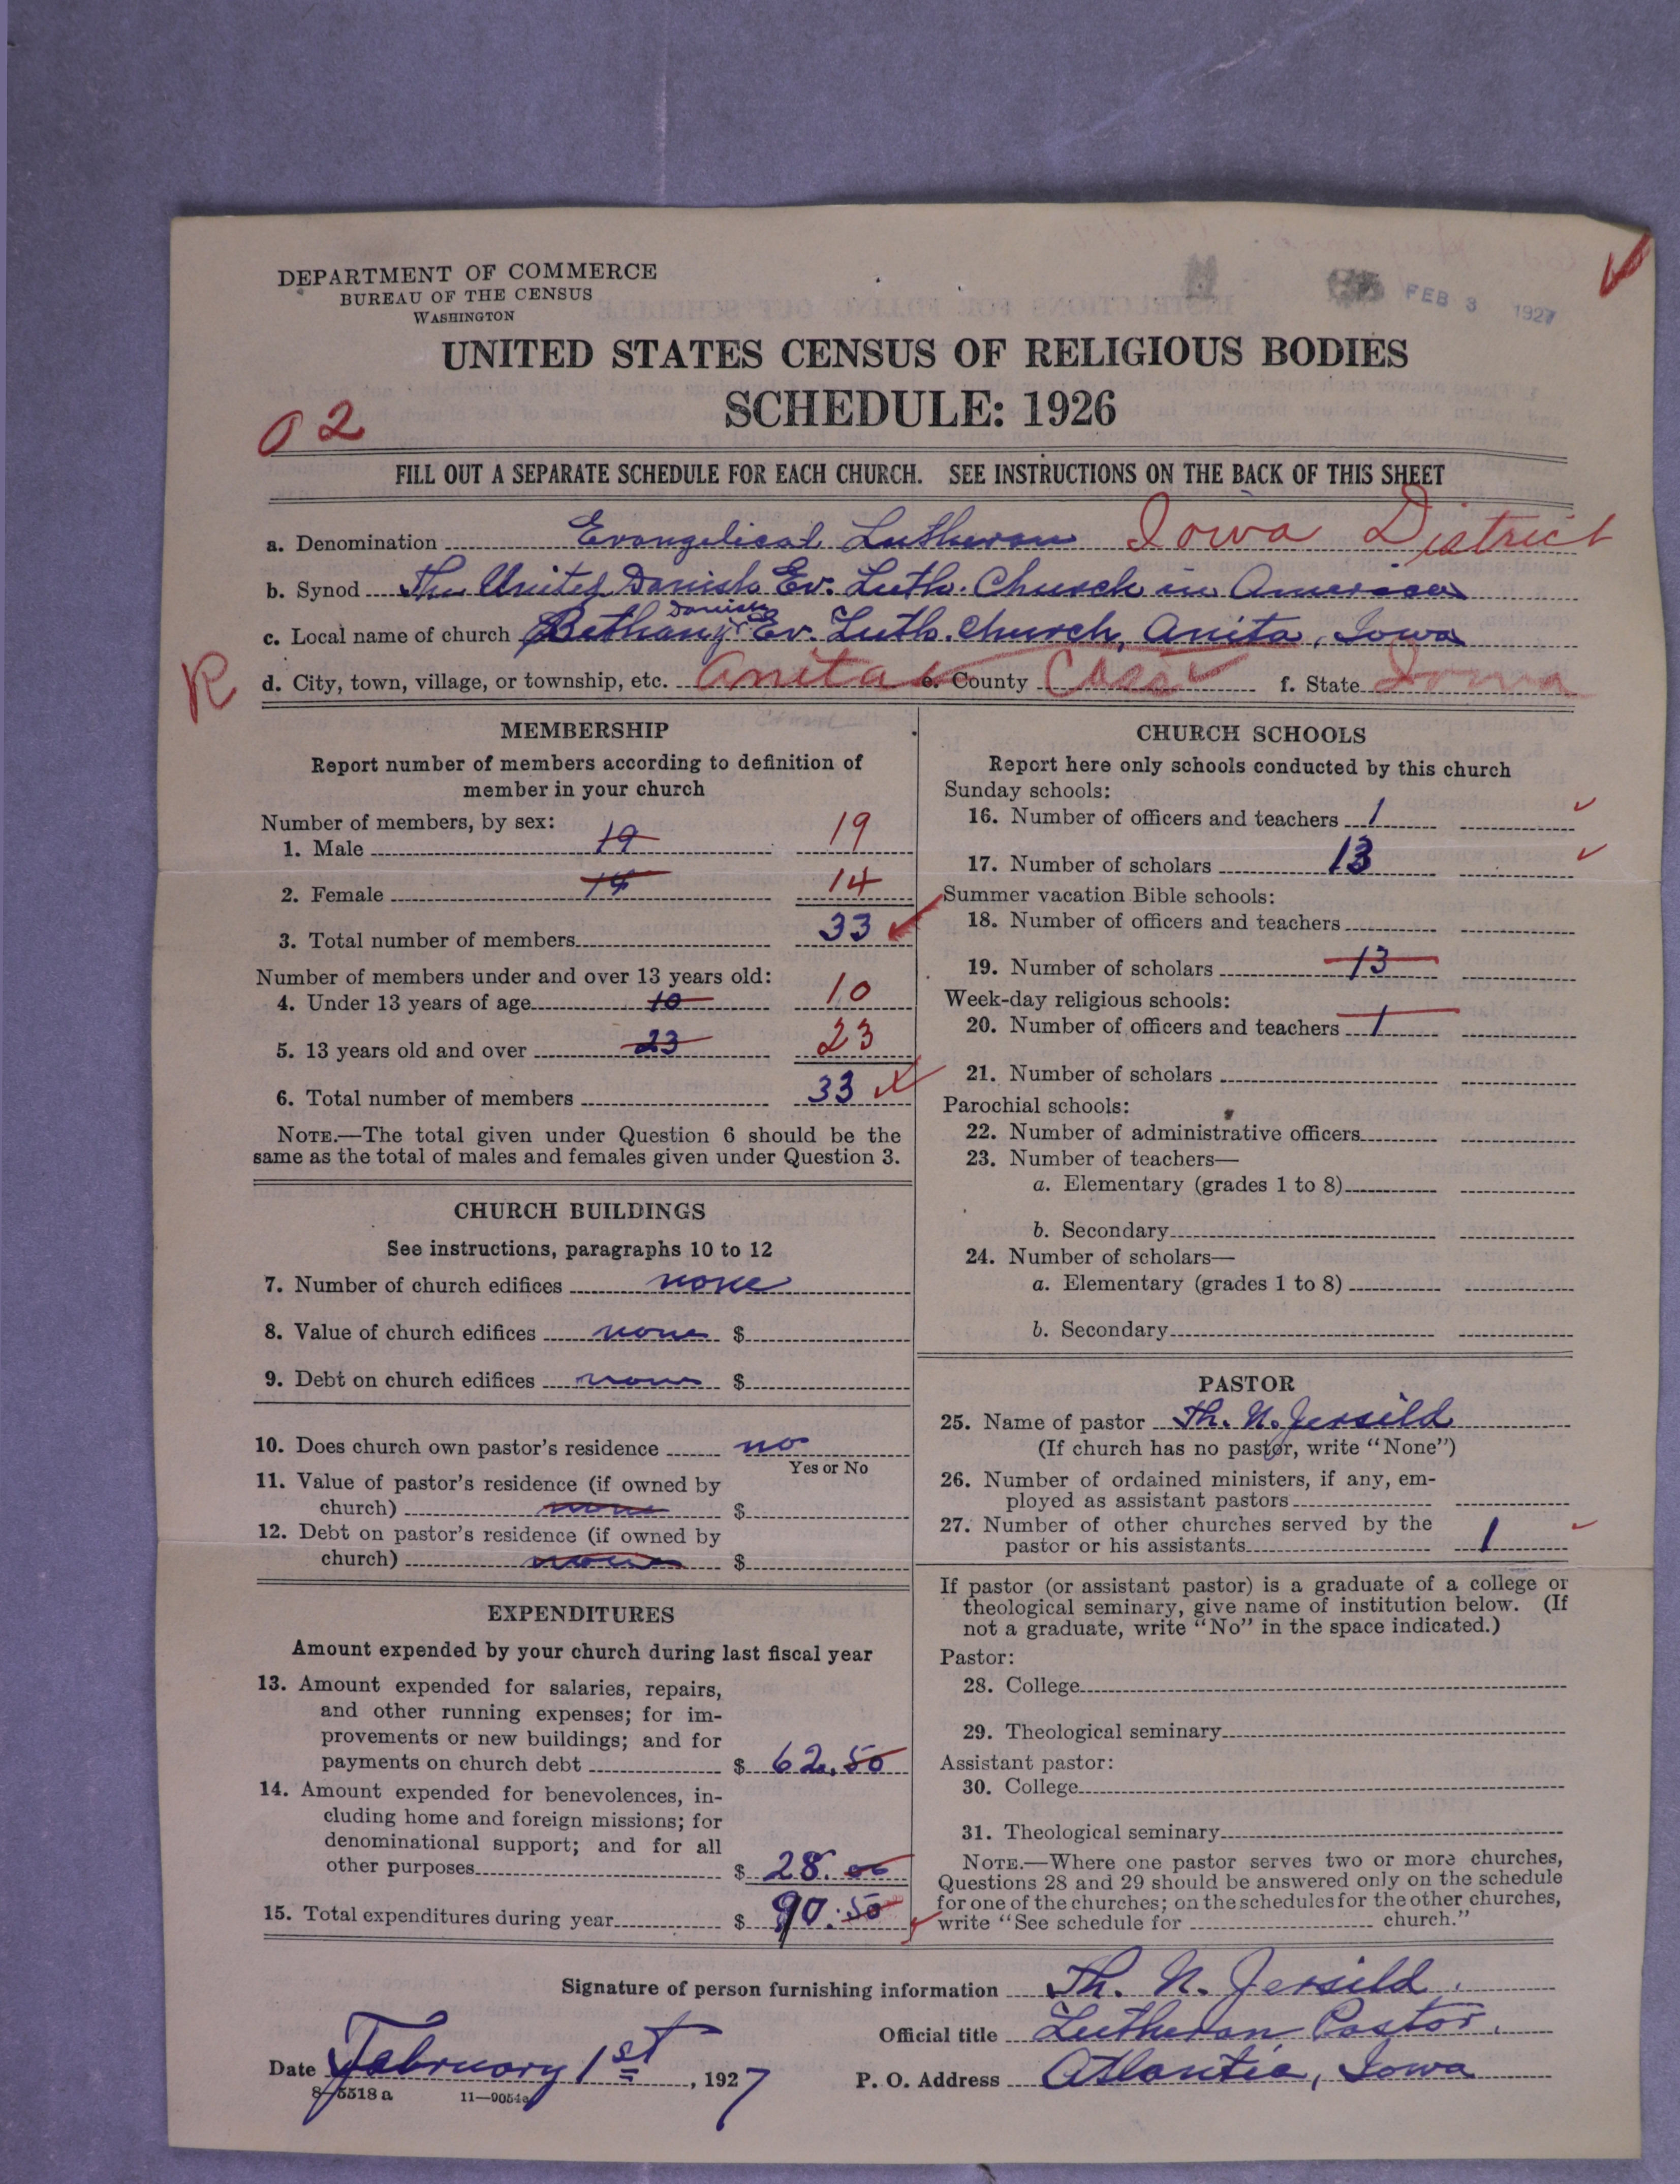 DEPARTMENT OF COMMERCE
BUREAU OF THE CENSUS
WASHINGTON
FEB 3 1927
UNITED STATES CENSUS OF RELIGIOUS BODIES
SCHEDULE: 1926
02
FILL OUT A SEPARATE SCHEDULE FOR EACH CHURCH. SEE INSTRUCTIONS ON THE BACK OF THIS SHEET
a. Denomination Evangelical Lutheran Iowa District
b. Synod The United Danish Ev. Luth. Church in America
c. Local name of church Bethany Danish Ev. Luth. Church, Anita, Iowa
R
d. City, town, village, or township, etc. Anita e. County Cass f. State Iowa
MEMBERSHIP
Report number of members according to definition of
member in your church
Number of members, by sex:
1. Male 19 19
2. Female 14 14
3. Total number of members 33
Number of members under and over 13 years old:
4. Under 13 years of age 10 10
5. 13 years old and over 23 23
6. Total number of members 33
NOTE.—The total given under Question 6 should be the
same as the total of males and females given under Question 3.
CHURCH BUILDINGS
See instructions, paragraphs 10 to 12
7. Number of church edifices none
8. Value of church edifices none $
9. Debt on church edifices none $
10. Does church own pastor's residence no
Yes or No
11. Value of pastor's residence (if owned by
church) none $
12. Debt on pastor's residence (if owned by
church) none $
EXPENDITURES
Amount expended by your church during last fiscal year
13. Amount expended for salaries, repairs,
and other running expenses; for im-
provements or new buildings; and for
payments on church debt $ 62.50
14. Amount expended for benevolences, in-
cluding home and foreign missions; for
denominational support; and for all
other purposes $ 28.00
15. Total expenditures during year $ 90.50
CHURCH SCHOOLS
Report here only schools conducted by this church
Sunday schools:
16. Number of officers and teachers 1
17. Number of scholars 13
Summer vacation Bible schools:
18. Number of officers and teachers
19. Number of scholars 13
Week-day religious schools:
20. Number of officers and teachers 1
21. Number of scholars
Parochial schools:
22. Number of administrative officers
23. Number of teachers—
a. Elementary (grades 1 to 8)
b. Secondary
24. Number of scholars—
a. Elementary (grades 1 to 8)
b. Secondary
PASTOR
25. Name of pastor Th. N. Jersild
(If church has no pastor, write "None")
26. Number of ordained ministers, if any, em-
ployed as assistant pastors
27. Number of other churches served by the
pastor or his assistants 1
If pastor (or assistant pastor) is a graduate of a college or
theological seminary, give name of institution below. (If
not a graduate, write "No" in the space indicated.)
Pastor:
28. College
29. Theological seminary
Assistant pastor:
30. College
31. Theological seminary
NOTE.—Where one pastor serves two or more churches,
Questions 28 and 29 should be answered only on the schedule
for one of the churches; on the schedules for the other churches,
write "See schedule for church."
Signature of person furnishing information Th. N. Jersild.
Official title Lutheran Pastor.
Date February 1st, 1927
P. O. Address Atlantic, Iowa
8-5518 a 11-9054a